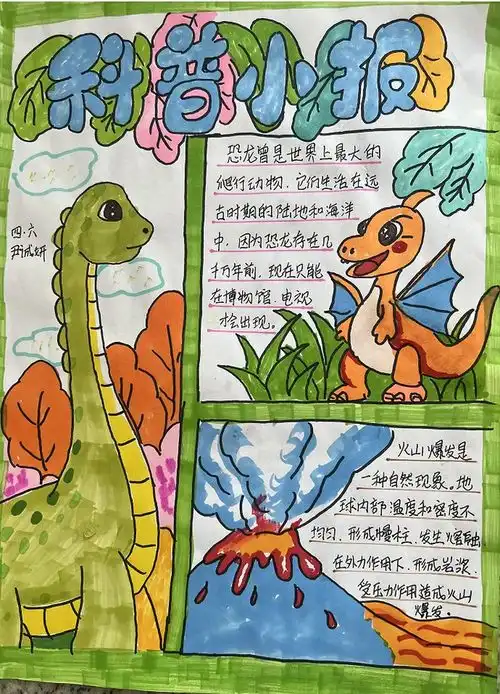 科普小报
四.六
恐龙曾是世界上最大的
爬行动物.它们生活在远
古时期的陆地和海洋
中.因为恐龙存在几
千万年前.现在只能
在博物馆.电视
会出现。
火山爆发是
一种自然现象。地
球内部温度和密度不
均匀.形成慢柱.发生熔融
在外力作用下.形成岩浆
受压力作用造成火山
爆发.